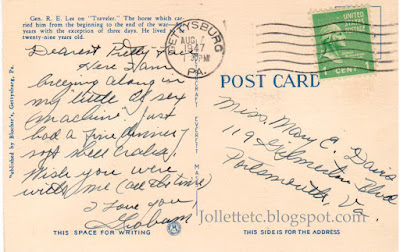 Gen. R. E. Lee on "Traveler." The horse which car-
ried him from the beginning to the end of the war—
years with the exception of three days. He lived
twenty-nine years old.
Dearest
Here I am
breezing along in
my little ol' sex
machine. Just
had a fine dinner
soft shell crabs.
Wish you were
with me (all the time)
I love you
Graham
Published by Blocher's, Gettysburg, Pa.
THIS SPACE FOR WRITING
GETTYSBURG
AUG
1947
PM
PA.
UNITED
STATES
POSTAGE
1 CENT 1
POST CARD
Miss Mary C. Davis
119 Gilmerton Blvd
Portsmouth, Va.
Jollettetc.blogspot.com
THIS SIDE IS FOR ADDRESS